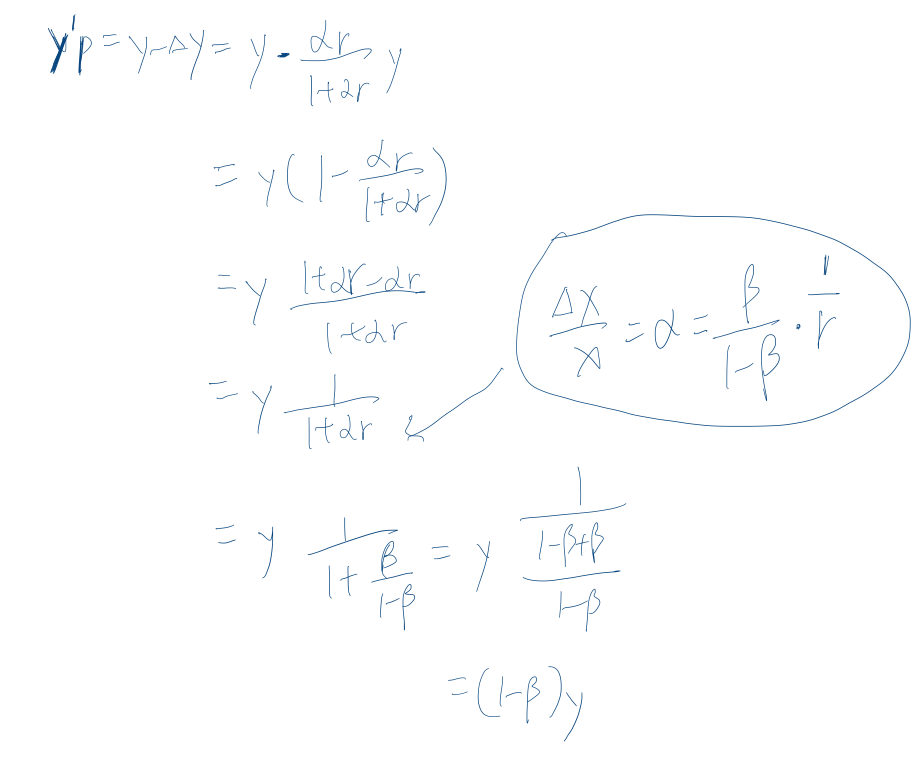 y'p = y - Δy = y - αr/(1+αr) y
= y(1 - αr/(1+αr))
= y (1+αr-αr)/(1+αr)
Δx/x = α = β/(1-β) · 1/r
= y 1/(1+αr)
= y 1/(1 + β/(1-β)) = y 1/((1-β+β)/(1-β))
= (1-β)y